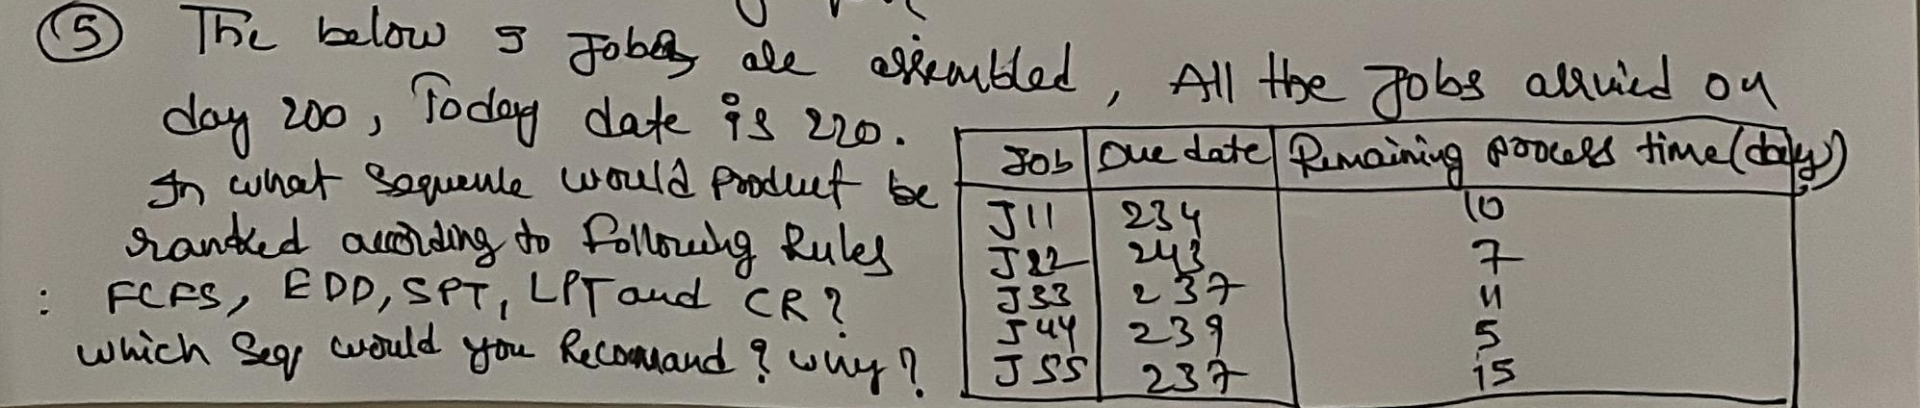 ⑤ The below 5 Jobs are assembled, All the Jobs arrived on
day 200, Today date is 220.
In what Sequence would product be
ranked according to following Rules
: FCFS, EDD, SPT, LPT and CR?
which Seq would you Recommand? why?
Job Due date Remaining process time (days)
J11 234 10
J22 243 7
J33 237 11
J44 239 5
J55 237 15